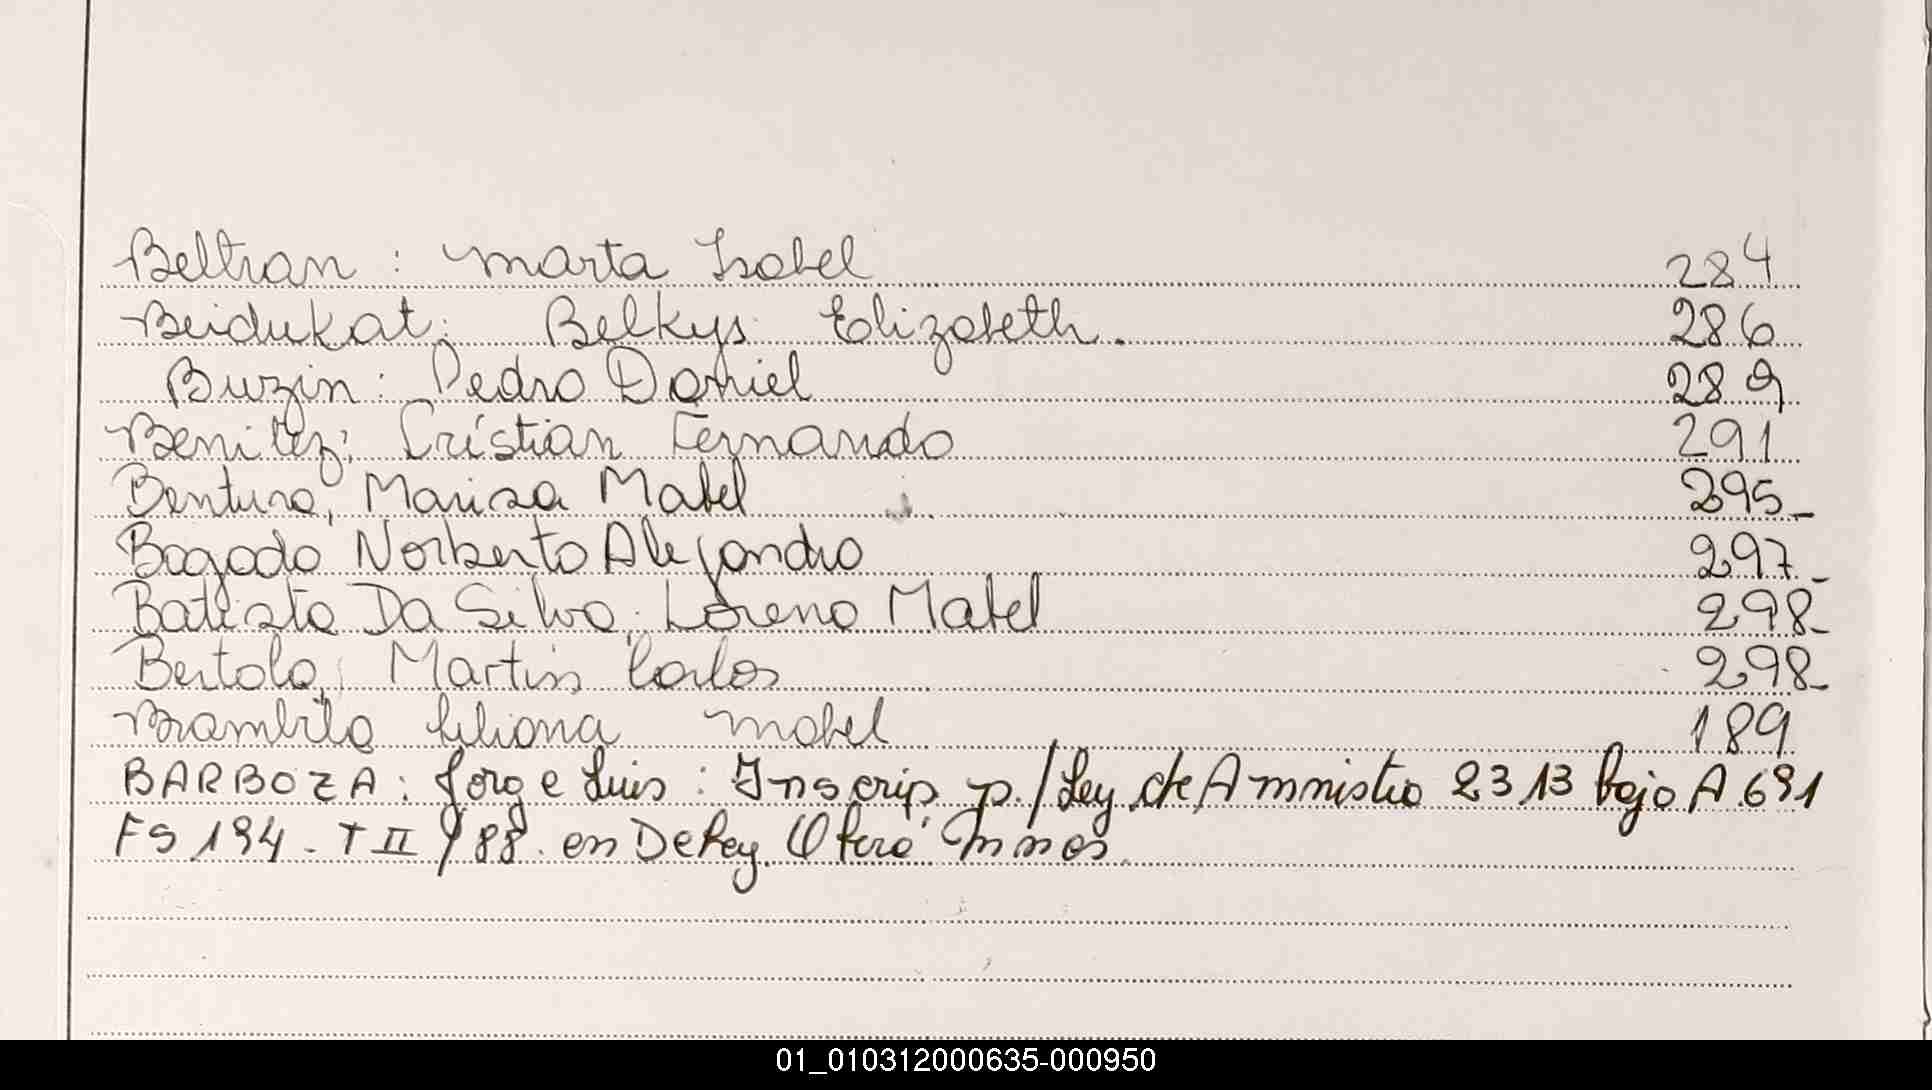 Beltran : marta Isabel 284
Beidukat; Belkys Elizabeth. 286
Buzin : Pedro Daniel 289
Benitez; Cristian Fernando 291
Bentura, Marisa Mabel 295-
Bogado Norberto Alejandro 297-
Batista Da Silva; Lorena Mabel 298-
Bertolo, Martin Carlos 298-
Brambila liliana mabel 189
BARBOZA : Jorge Luis : Inscrip. p./Ley de Amnistia 2313 bajo A 691
FS 194 - T II / 88 en Deleg. Oberá
01_010312000635-000950